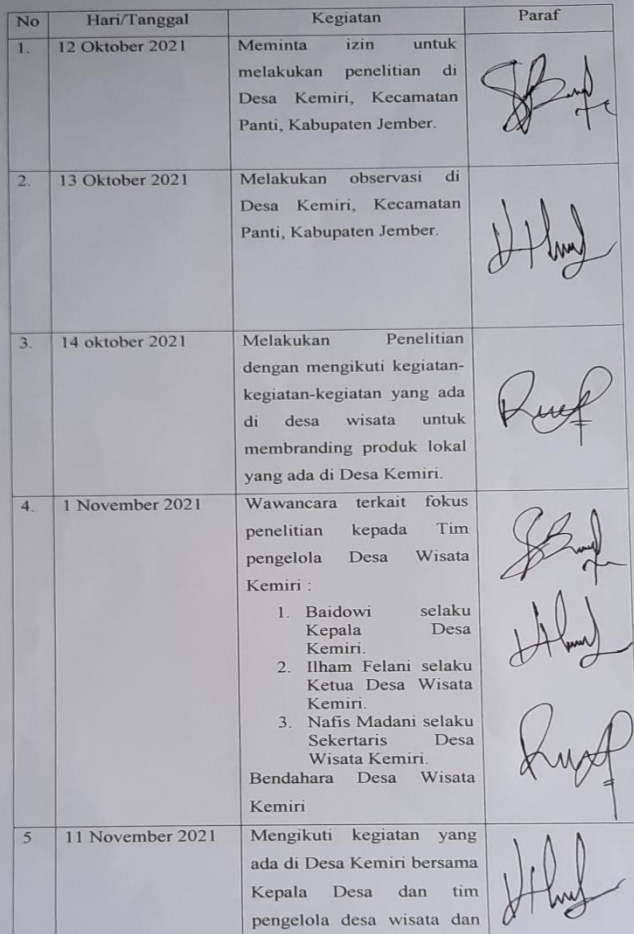 No Hari/Tanggal Kegiatan Paraf
1. 12 Oktober 2021 Meminta izin untuk
melakukan penelitian di
Desa Kemiri, Kecamatan
Panti, Kabupaten Jember.
2. 13 Oktober 2021 Melakukan observasi di
Desa Kemiri, Kecamatan
Panti, Kabupaten Jember.
3. 14 oktober 2021 Melakukan Penelitian
dengan mengikuti kegiatan-
kegiatan-kegiatan yang ada
di desa wisata untuk
membranding produk lokal
yang ada di Desa Kemiri.
4. 1 November 2021 Wawancara terkait fokus
penelitian kepada Tim
pengelola Desa Wisata
Kemiri :
1. Baidowi selaku
Kepala Desa
Kemiri.
2. Ilham Felani selaku
Ketua Desa Wisata
Kemiri.
3. Nafis Madani selaku
Sekertaris Desa
Wisata Kemiri.
Bendahara Desa Wisata
Kemiri
5 11 November 2021 Mengikuti kegiatan yang
ada di Desa Kemiri bersama
Kepala Desa dan tim
pengelola desa wisata dan